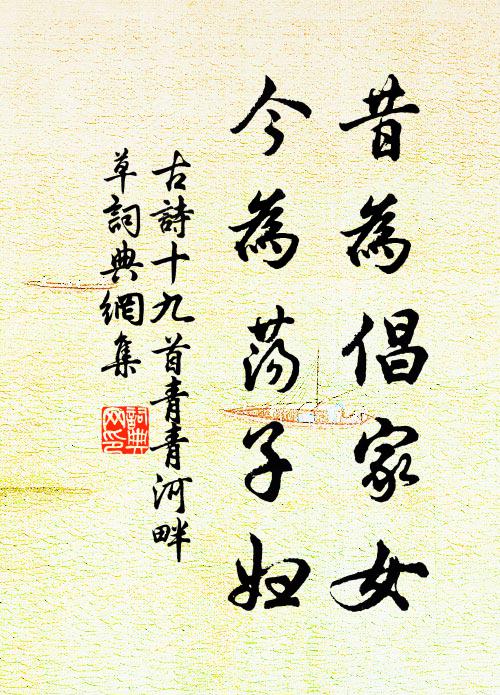 昔為倡家女
今為蕩子婦
古詩十九首青青河畔
草詞典網集
詞典
网印